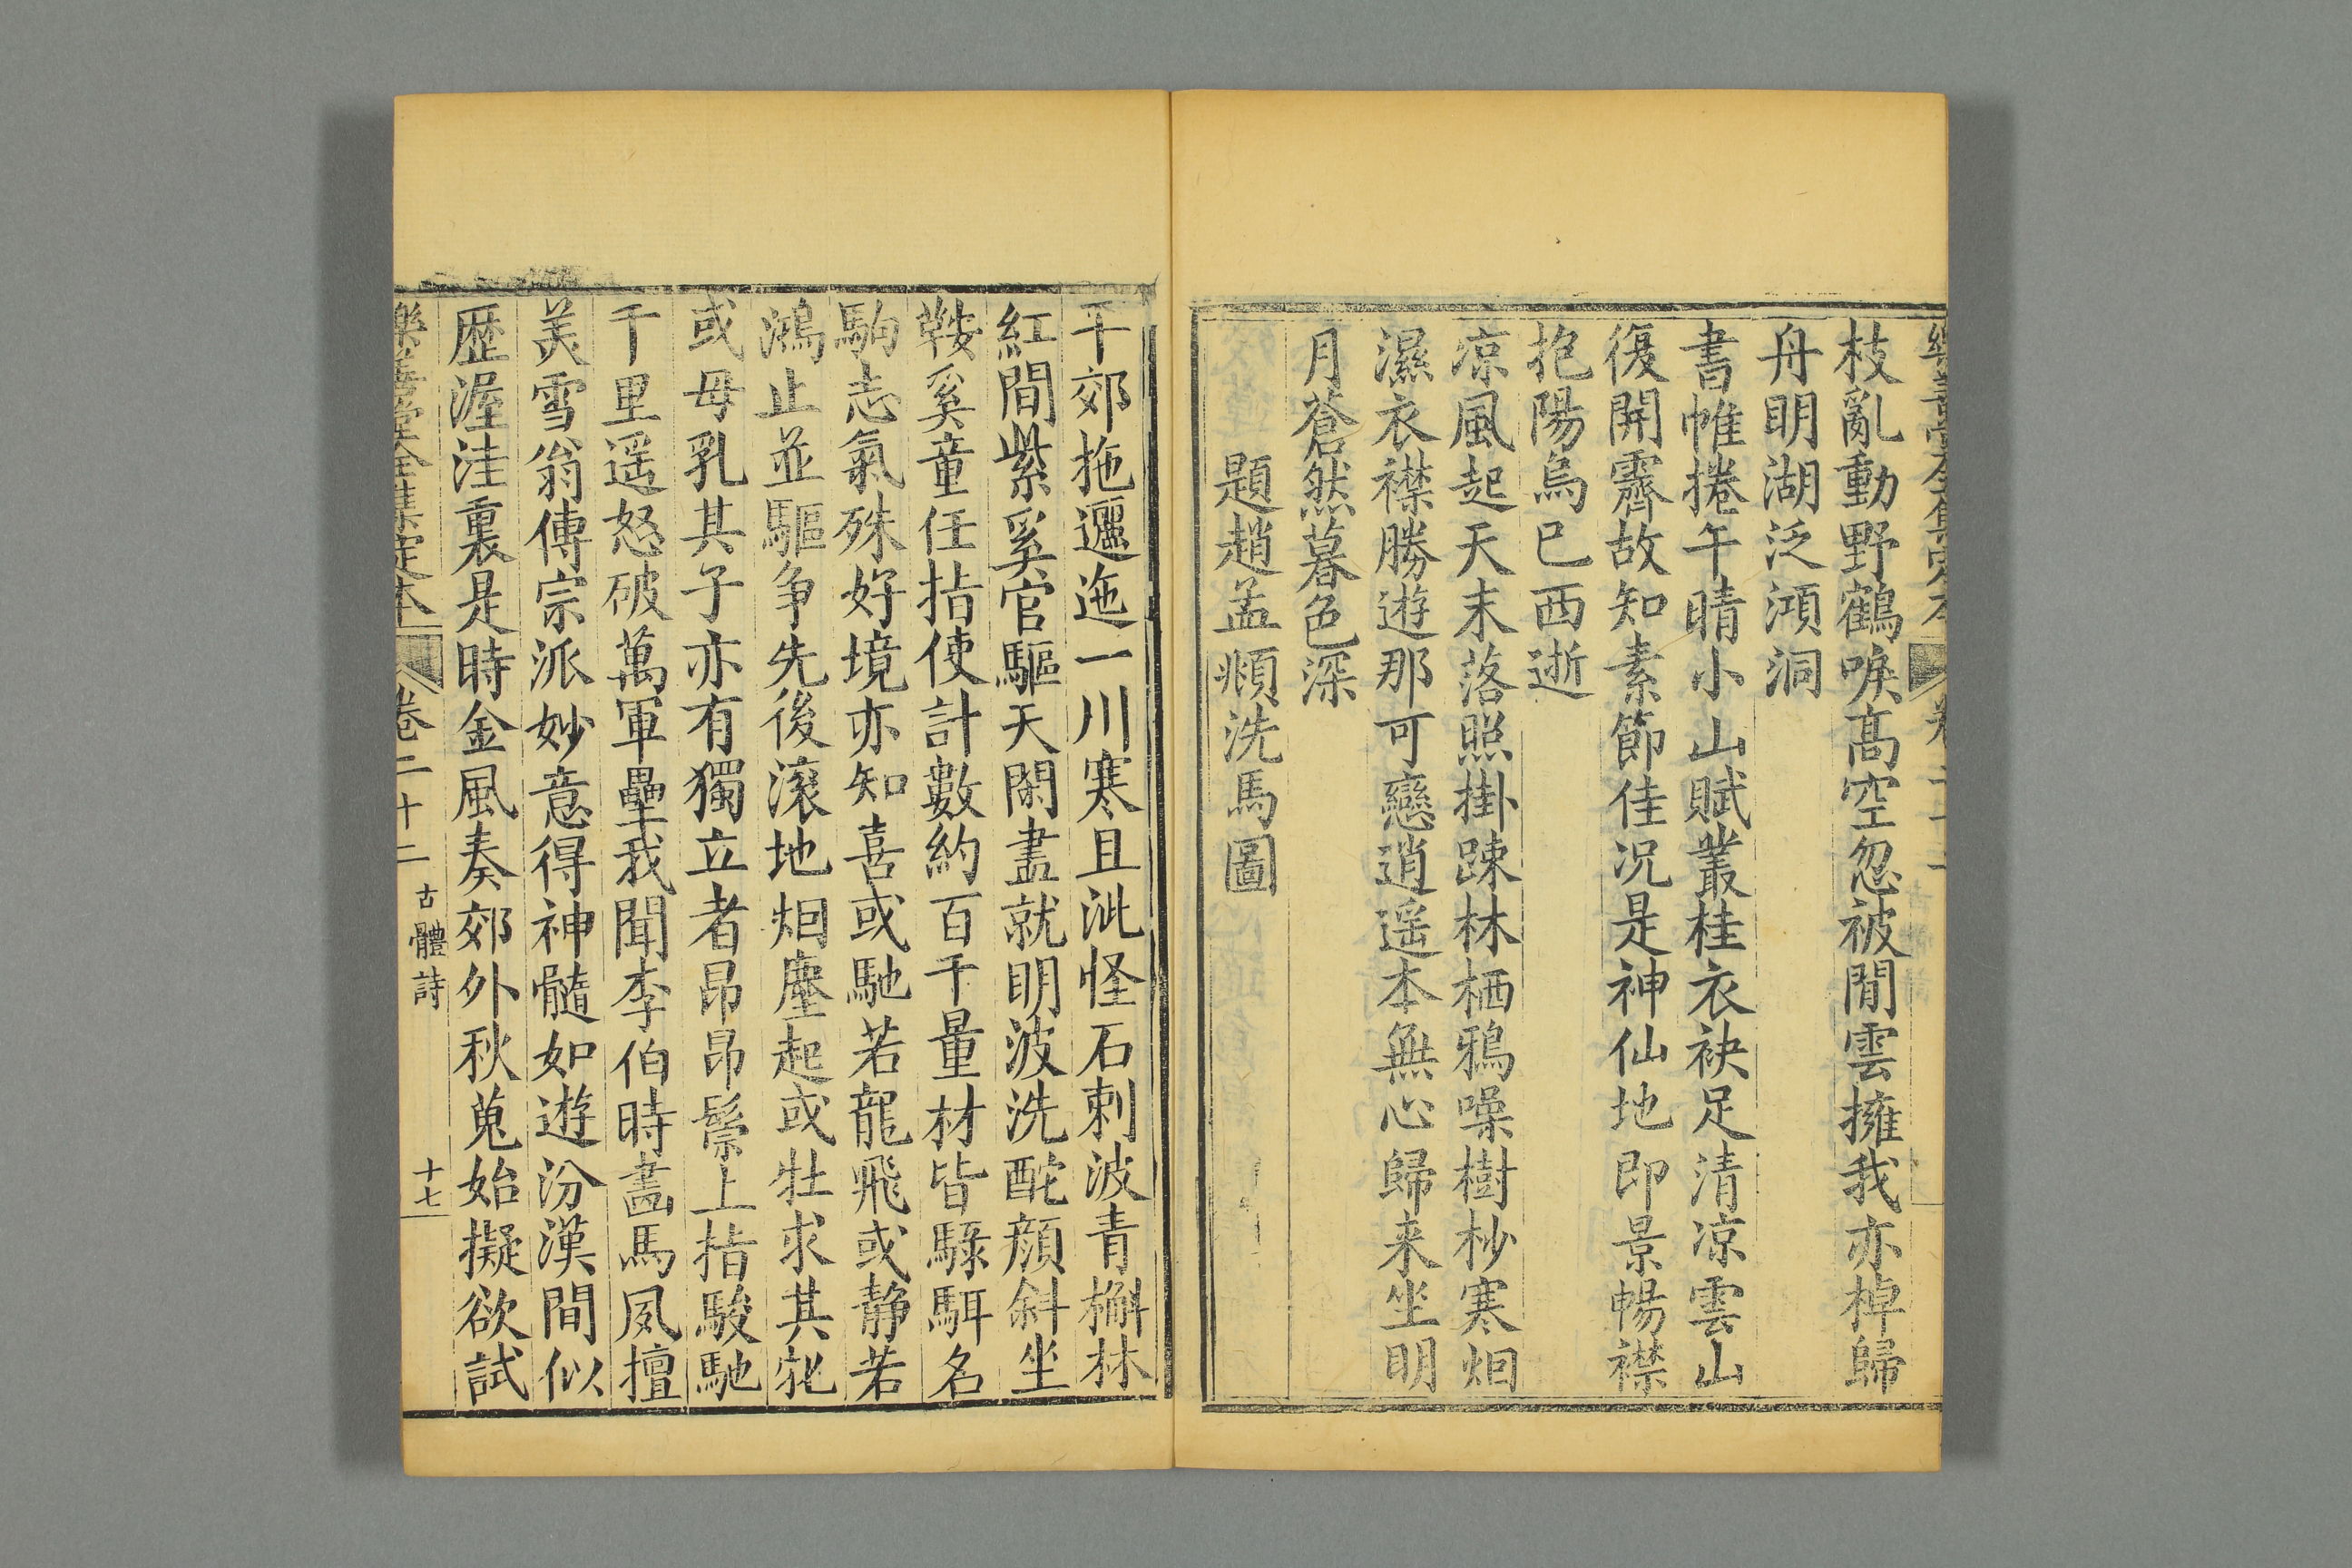 枝亂動野鶴唳髙空忽被閒雲擁我亦棹歸
舟明湖泛澒洞
書帷捲午晴小山賦叢桂衣袂足清涼雲山
復開霽故知素節佳况是神仙地即景暢襟
抱陽烏已西逝
凉風起天末落照掛踈林栖鴉噪樹杪寒烟
濕衣襟勝遊那可戀逍遥本無心歸来坐明
月蒼然暮色深
題趙孟頫洗馬圖
干郊拖邐迤一川寒且泚怪石刺波青槲林
紅間紫奚官驅天閑畫就明波洗酡顔斜坐
鞍奚童任指使計數約百千量材皆騄駬名
駒志氣殊好境亦知喜或馳若龍飛或静若
鴻止並驅争先後滚地烟塵起或牡求其牝
或母乳其子亦有獨立者昂昂鬃上指駿馳
千里遥怒破萬軍壘我聞李伯時畫馬夙擅
美雪翁傳宗派妙意得神髓如遊汾漢間似
歴渥洼裏是時金風奏郊外秋蒐始擬欲試
樂善堂全集定本 卷二十二 古體詩 十七